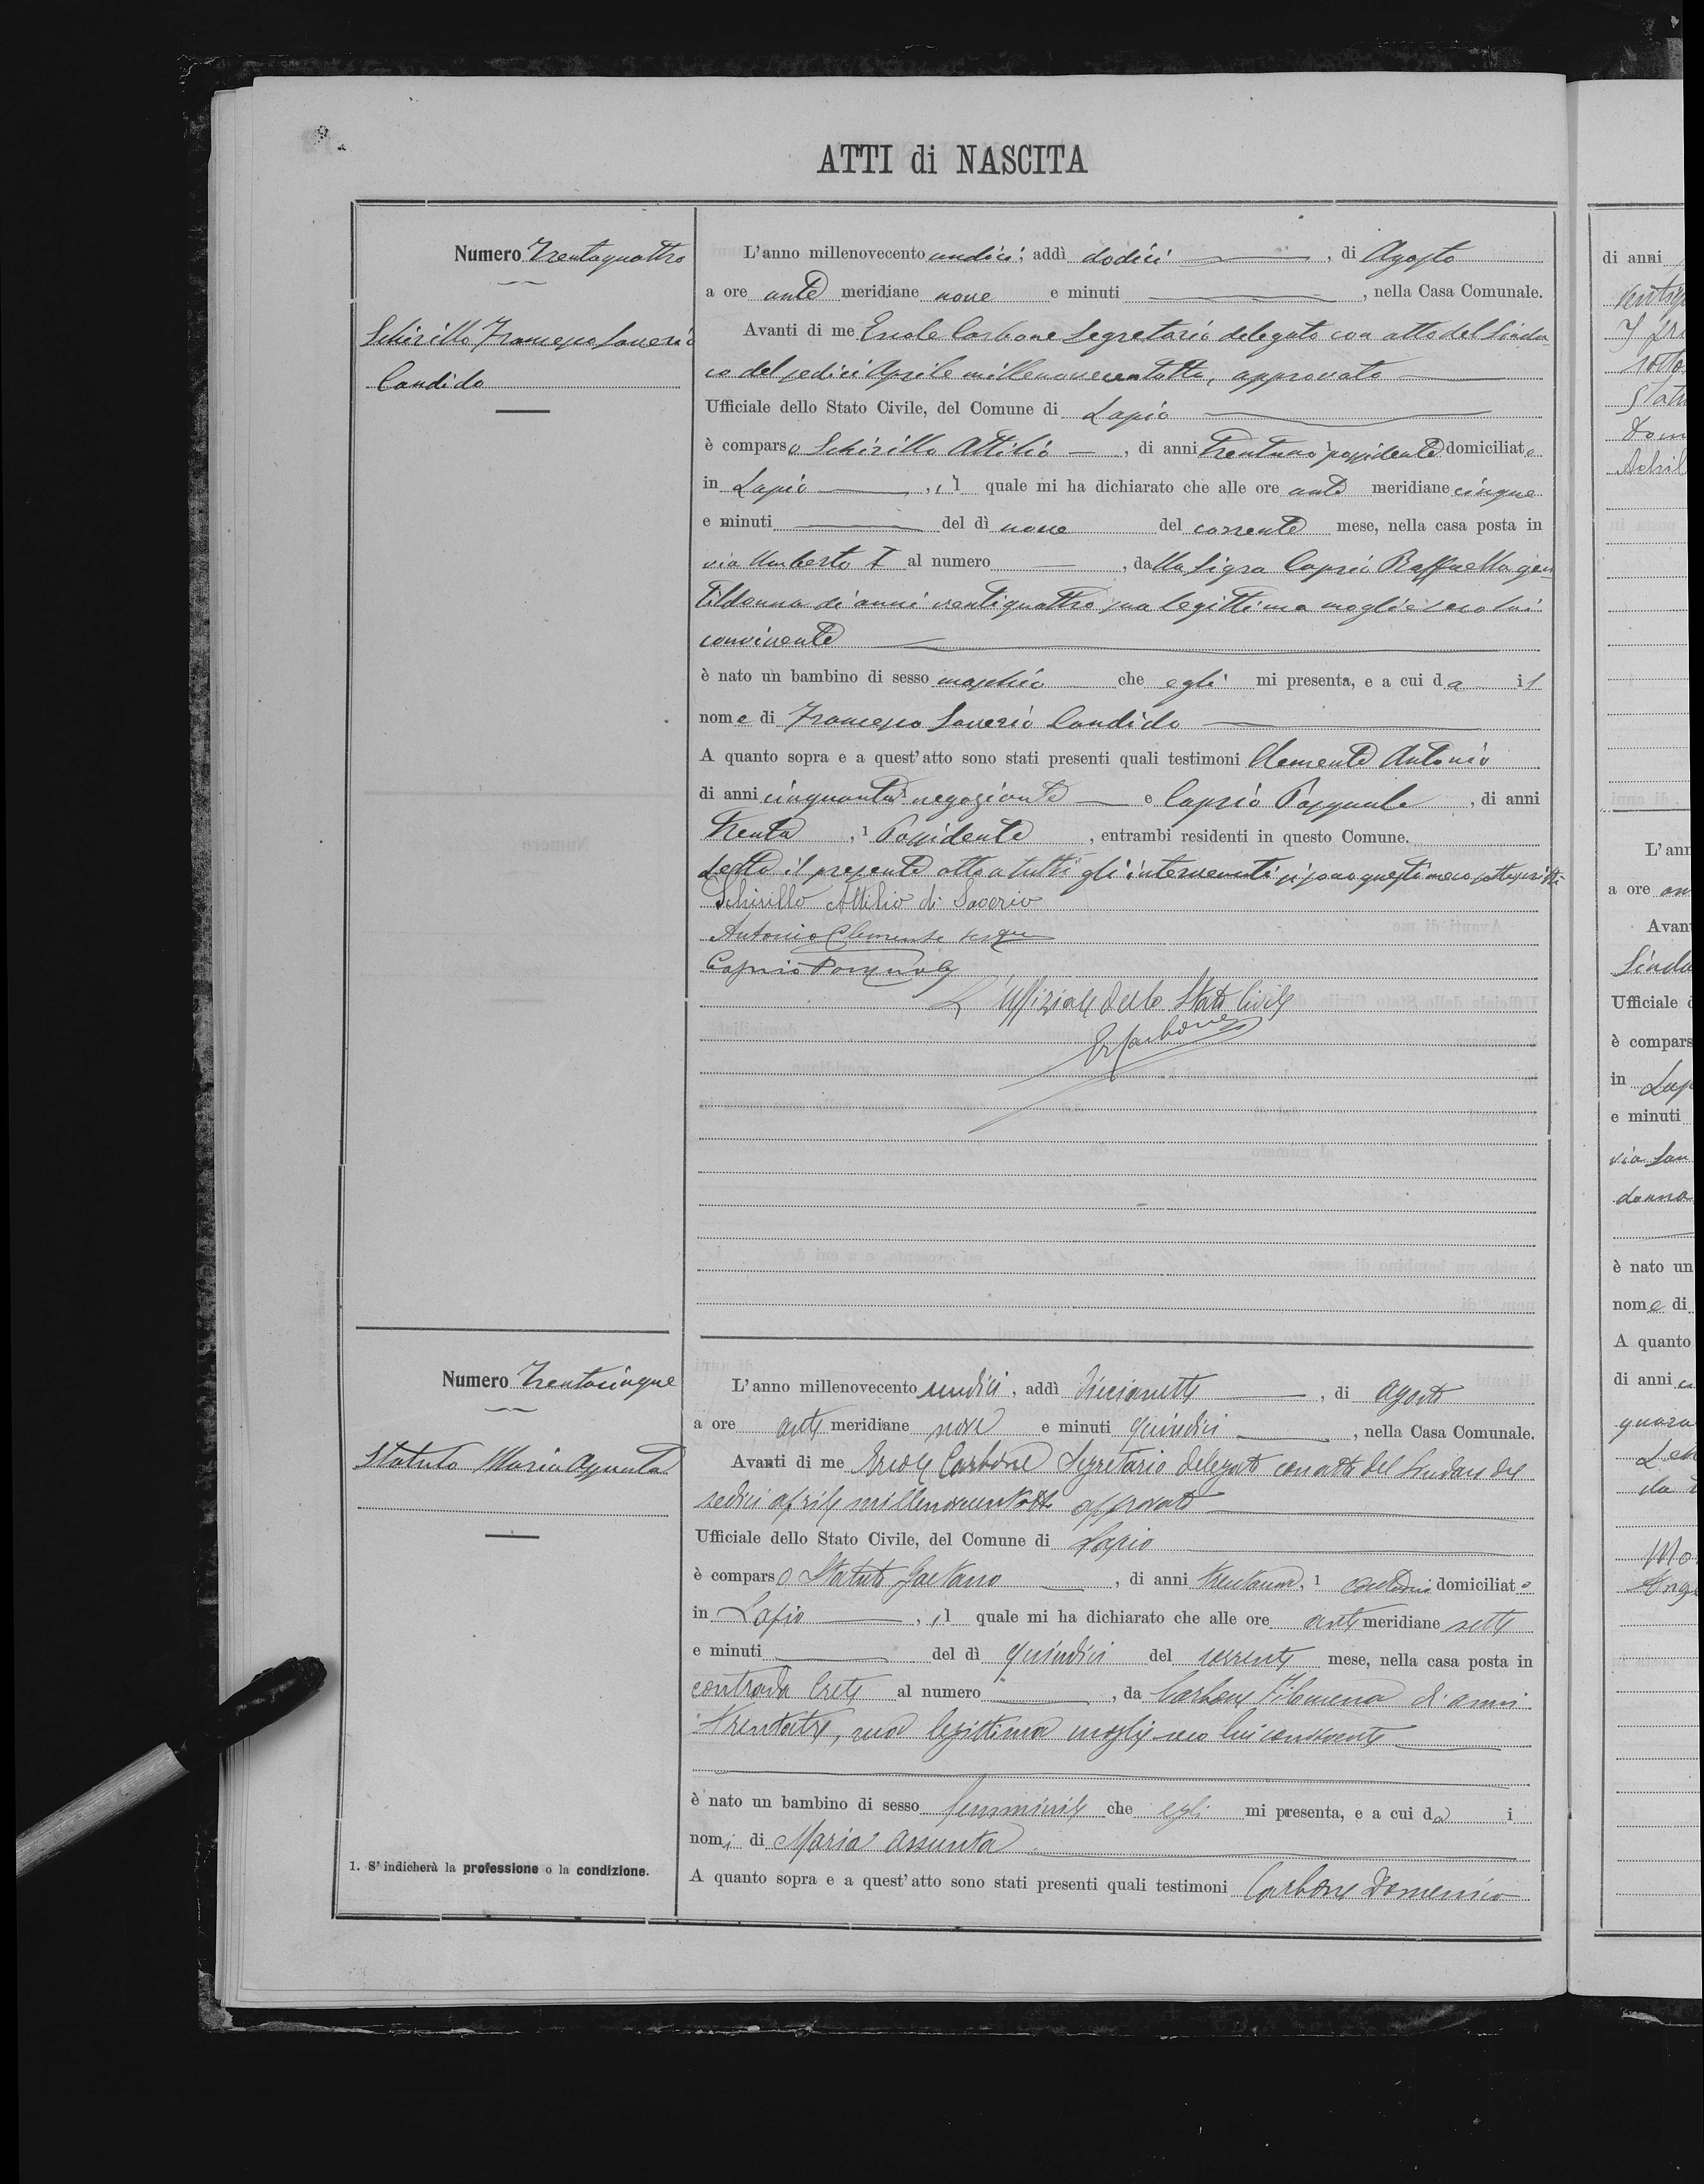 ATTI di NASCITA
Numero Trentaquattro
Schirillo Francesco Saverio
Candido
L'anno millenovecento undici, addì dodici, di Agosto
a ore ante meridiane nove e minuti, nella Casa Comunale.
Avanti di me Ercole Carbone Segretario delegato con atto del Sinda-
co del sedici Aprile millenovecentotto, approvato
Ufficiale dello Stato Civile, del Comune di Lapio
è comparso Schirillo Attilio, di anni trentuno 1 possidente domiciliato
in Lapio, il quale mi ha dichiarato che alle ore ante meridiane cinque
e minuti del dì nove del corrente mese, nella casa posta in
via Umberto I al numero, dalla Sigra Caprio Raffaella gen
tildonna di anni ventiquattro sua legittima moglie seco lui
convivente
è nato un bambino di sesso maschio che egli mi presenta, e a cui da il
nome di Francesco Saverio Candido
A quanto sopra e a quest'atto sono stati presenti quali testimoni Clemente Antonio
di anni cinquanta 1 negoziante e Caprio Pasquale, di anni
trenta, 1 Possidente, entrambi residenti in questo Comune.
Letto il presente atto a tutti gli intervenuti si sono questi meco sottoscritti
Schirillo Attilio di Saverio
Antonio Clemente
Caprio Pasquale
L'Uffiziale dello Stato Civile
E Carbone
Numero Trentacinque
Statuto Maria Assunta
L'anno millenovecento undici, addì diciassette, di agosto
a ore ante meridiane nove e minuti quindici, nella Casa Comunale.
Avanti di me Ercole Carbone Segretario delegato con atto del Sindaco del
sedici aprile millenovecentotto approvato
Ufficiale dello Stato Civile, del Comune di Lapio
è comparso Statuto Gaetano, di anni, 1 contadino domiciliato
in Lapio, il quale mi ha dichiarato che alle ore ante meridiane sette
e minuti del dì quindici del corrente mese, nella casa posta in
contrada Crete al numero, da Carbone Filomena di anni
trentatre, sua legittima moglie seco lui convivente
è nato un bambino di sesso femminile che egli mi presenta, e a cui da i
nomi di Maria Assunta
A quanto sopra e a quest'atto sono stati presenti quali testimoni Carbone Domenico
1. S'indicherà la professione o la condizione.
di anni
L'ann
a ore
Avan
Ufficiale
è compars
in
e minuti
donna
è nato un
nome di
A quanto
di anni